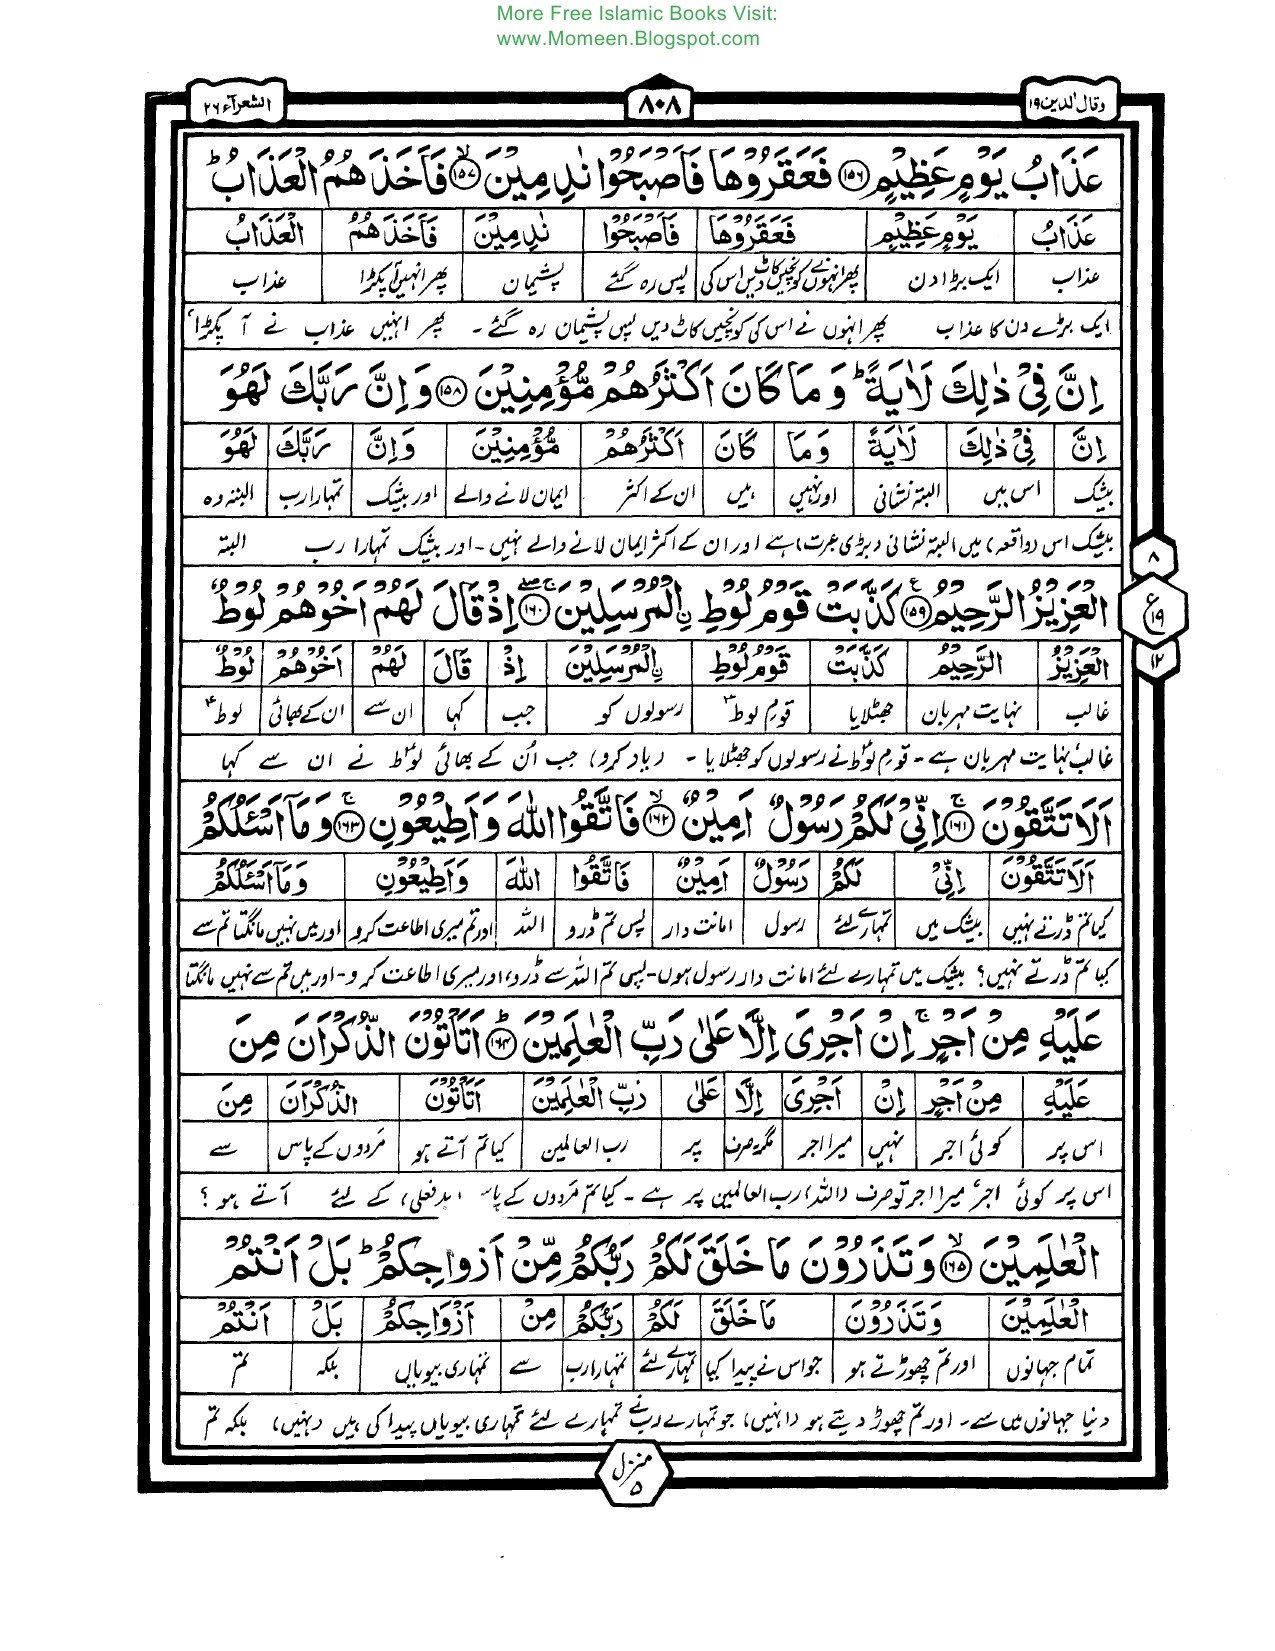 More Free Islamic Books Visit:
www.Momeen.Blogspot.com
وقال الذین ۱۹ ۸۰۸ الشعرآء ۲۶
عَذَابُ یَوْمٍ عَظِیْمٍ ﴿۱۵۶﴾ فَعَقَرُوْهَا فَاَصْبَحُوْا نٰدِمِیْنَ ﴿۱۵۷﴾ۙ فَاَخَذَهُمُ الْعَذَابُ ؕ
عَذَابُ یَوْمٍ عَظِیْمٍ فَعَقَرُوْهَا فَاَصْبَحُوْا نٰدِمِیْنَ فَاَخَذَهُمُ الْعَذَابُ
عذاب ایک بڑا دن پھر انہوں نے کونچیں کاٹ دیں اس کی پس رہ گئے پشیمان پھر انہیں آ پکڑا عذاب
ایک بڑے دن کا عذاب پھر انہوں نے اس کی کونچیں کاٹ دیں پس پشیمان رہ گئے۔ پھر انہیں عذاب نے آ پکڑا،
اِنَّ فِیْ ذٰلِكَ لَاٰیَةً ؕ وَ مَا كَانَ اَكْثَرُهُمْ مُّؤْمِنِیْنَ ﴿۱۵۸﴾ وَ اِنَّ رَبَّكَ لَهُوَ
اِنَّ فِیْ ذٰلِكَ لَاٰیَةً وَ مَا كَانَ اَكْثَرُهُمْ مُّؤْمِنِیْنَ وَاِنَّ رَبَّكَ لَهُوَ
بیشک اس میں البتہ نشانی اور نہیں ہیں ان کے اکثر ایمان لانے والے اور بیشک تمہارا رب البتہ وہ
بیشک اس (واقعہ) میں البتہ نشانی (بڑی عبرت) ہے اور ان کے اکثر ایمان لانے والے نہیں۔ اور بیشک تمہارا رب البتہ
الْعَزِیْزُ الرَّحِیْمُ ﴿۱۵۹﴾ ع كَذَّبَتْ قَوْمُ لُوْطِ ِ۟الْمُرْسَلِیْنَ ﴿۱۶۰﴾ اِذْ قَالَ لَهُمْ اَخُوْهُمْ لُوْطٌ
الْعَزِیْزُ الرَّحِیْمُ كَذَّبَتْ قَوْمُ لُوْطِ ِ۟الْمُرْسَلِیْنَ اِذْ قَالَ لَهُمْ اَخُوْهُمْ لُوْطٌ
غالب نہایت مہربان جھٹلایا قوم لوطؑ رسولوں کو جب کہا ان سے ان کے بھائی لوطؑ
غالب نہایت مہربان ہے۔ قوم لوطؑ نے رسولوں کو جھٹلایا۔ (یاد کرو) جب اُن کے بھائی لوطؑ نے ان سے کہا
۸
ع ۱۹
۱۲
اَلَا تَتَّقُوْنَ ﴿۱۶۱﴾ۚ اِنِّیْ لَكُمْ رَسُوْلٌ اَمِیْنٌ ﴿۱۶۲﴾ۙ فَاتَّقُوا اللّٰهَ وَ اَطِیْعُوْنِ ﴿۱۶۳﴾ۚ وَ مَاۤ اَسْـَٔلُكُمْ
اَلَا تَتَّقُوْنَ اِنِّیْ لَكُمْ رَسُوْلٌ اَمِیْنٌ فَاتَّقُوا اللّٰهَ وَاَطِیْعُوْنِ وَمَاۤ اَسْـَٔلُكُمْ
کیا تم ڈرتے نہیں بیشک میں تمہارے لئے رسول امانت دار پس تم ڈرو اللہ اور تم میری اطاعت کرو اور میں نہیں مانگتا تم سے
کیا تم ڈرتے نہیں؟ بیشک میں تمہارے لئے امانت دار رسول ہوں۔ پس تم اللہ سے ڈرو، اور میری اطاعت کرو۔ اور میں تم سے نہیں مانگتا
عَلَیْهِ مِنْ اَجْرٍ ۚ اِنْ اَجْرِیَ اِلَّا عَلٰى رَبِّ الْعٰلَمِیْنَ ﴿۱۶۴﴾ؕ اَتَاْتُوْنَ الذُّكْرَانَ مِنَ
عَلَیْهِ مِنْ اَجْرٍ اِنْ اَجْرِیَ اِلَّا عَلٰى رَبِّ الْعٰلَمِیْنَ اَتَاْتُوْنَ الذُّكْرَانَ مِنَ
اس پر کوئی اجر نہیں میرا اجر مگر صرف پر رب العالمین کیا تم آتے ہو مَردوں کے پاس سے
اس پر کوئی اجر، میرا اجر تو صرف (اللہ) رب العالمین پر ہے۔ کیا تم مَردوں کے پاس (بدفعلی) کے لئے آتے ہو؟
الْعٰلَمِیْنَ ﴿۱۶۵﴾ۙ وَ تَذَرُوْنَ مَا خَلَقَ لَكُمْ رَبُّكُمْ مِّنْ اَزْوَاجِكُمْ ؕ بَلْ اَنْتُمْ
الْعٰلَمِیْنَ وَتَذَرُوْنَ مَا خَلَقَ لَكُمْ رَبُّكُمْ مِنْ اَزْوَاجِكُمْ بَلْ اَنْتُمْ
تمام جہانوں اور تم چھوڑتے ہو جو اس نے پیدا کیا تمہارے لئے تمہارا رب سے تمہاری بیویاں بلکہ تم
دنیا جہانوں میں سے۔ اور تم چھوڑ دیتے ہو (انہیں)، جو تمہارے رب نے تمہارے لئے تمہاری بیویاں پیدا کی ہیں (نہیں)، بلکہ تم
منزل ۵